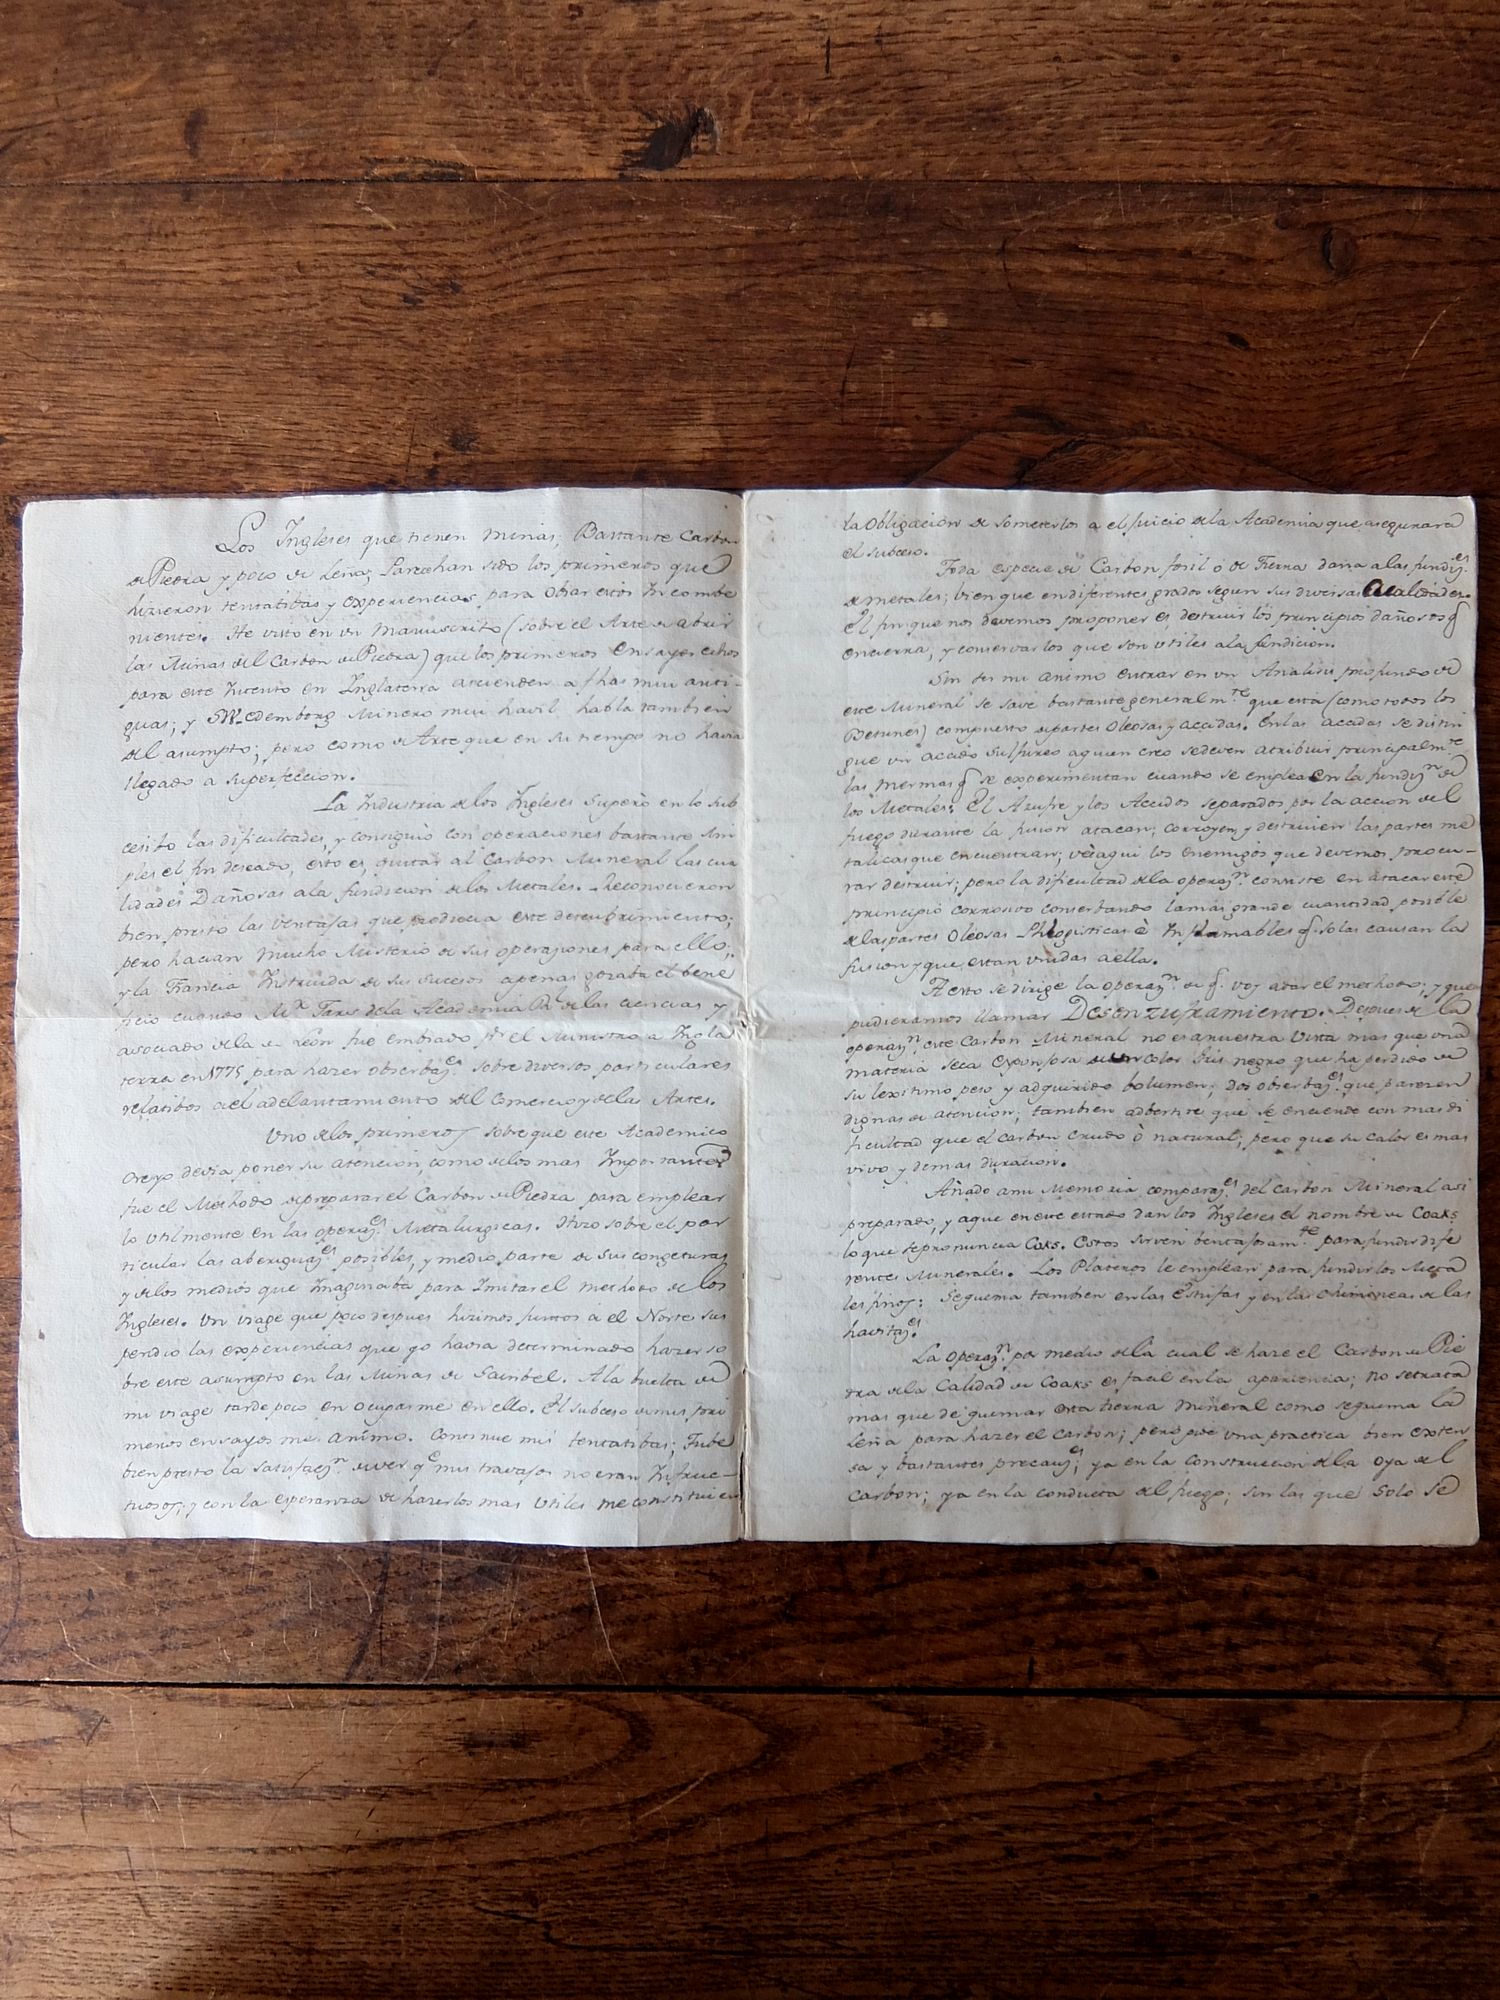 Los Ingleses que tienen minas; Bastante Carbon
de Piedra y poco de Leña; Parece han sido los primeros que
hizieron tentatibas y experiencias para obiar estos Incombe
nientes. He visto en un Manuscrito (sobre el Arte de abrir
las Minas del Carbon de Piedra) que los primeros ensayos echos
para este Intento en Inglaterra ascienden a fhas mui anti-
guas; y SWedemborg Minero mui havil habla tambien
del asumpto; pero como de Arte que en su tiempo no havia
llegado a superfeccion.
La Industria de los Ingleses Superò en lo sub
cesibo las dificultades, y consiguiò con operaciones bastante sim
ples el fin deseado, esto es, quitar al Carbon Mineral las cua
lidades Dañosas a la fundicion de los Metales. Reconocieron
bien presto las ventajas que producia este descubrimiento;
pero hacian Mucho Misterio de sus operaziones para ello;
y la Francia Instruida de sus sucesos apenas gozaba el bene
ficio cuando Mr. Jars de la Academia Rl. de las ciencias y
asociado de la de León fue embiado pr. el Ministro a Ingla
terra en 1775 para hazer obserbazes. sobre diversos particulares
relatibos a el adelantamiento del Comercio y de las Artes.
Uno de los primeros sobre que este Academico
creyo devia poner su atencion, como de los mas Importantes
fue el Methodo de preparar el Carbon de Piedra para emplear
lo utilmente en las operazes. Metalurgicas. Hizo sobre el par
ticular las aberiguazes posibles, y medio parte de sus congeturas
y de los medios que Imaginaba para Imitar el methodo de los
Ingleses. Un viage que poco despues hizimos juntos a el Norte sus
pendio las experiencias que yo havia determinado hazer so
bre este asumpto en las Minas de Sainbel. A la buelta de
mi viage tarde poco en ocuparme en ello. El subceso de mis pri
meros ensayos me animo. Continue mis tentatibas; Tube
bien presto la satisfazn. de ver qe. mis travajos no eran Infruc-
tuosos; y con la esperanza de hazerlos mas utiles me constituien
la obligacion de someterlos a el Juicio de la Academia que asegurara
el subceso.
Toda especie de Carbon fosil ó de Tierra daña a las fundizes.
de metales; bien que en diferentes grados segun sus diversas Cualidades.
El fin que nos devemos proponer es destruir los principios dañosos q
encierra, y conservar los que son utiles a la fundicion.
Sin ser mi animo entrar en un Analisis profundo de
este Mineral se save bastante generalmte. que esta (como todos los
Betunes) compuesto de partes Oleosas y accidas. En las accidas se distin
gue un accido sulfureo a quien creo se deven atribuir principalmte.
las mermas q se experimentan cuando se emplea en la fundizn. de
los Metales: El Azufre y los Accidos separados por la accion del
fuego durante la fusion atacan, corroyen y destruien las partes me
talicas que encuentran; vè aqui los enemigos que devemos procu-
rar destruir; pero la dificultad de la operazn. consiste en atacar este
principio corrosivo conserbando la mas grande cuantidad posible
de las partes Oleosas Phlogisticas è Inflamables q. solas causan la
fusion y que estan unidas a ella.
A esto se dirige la operazn. de q. voy a dar el methodo; y que
pudieramos llamar Desenzuframiento. Despues de la
operazn. este Carbon Mineral no es a nuestra Vista mas que una
materia seca esponjosa de un color Gris negro que ha perdido de
su lexitimo peso y adquirido bolumen; dos obserbazes. que parezen
dignas de atencion; tambien adbertire que se enciende con mas di
ficultad que el Carbon Crudo ò natural; pero que su calor es mas
vivo, y de mas duracion.
Añado a mi Memoria comparazes. del carbon Mineral asi
preparado, y a que en este estado dan los Ingleses el nombre de Coaks
lo que se pronuncia Coks. Estos sirven bentajosamte. para fundir dife
rentes Minerales. Los Plateros le emplean para fundir los Meta
les finos; Se quema tambien en las Estufas y en las Chimineas de las
havitazes.
La operazn. por medio de la cual se haze el Carbon de Pie
dra de la Calidad de Coaks es facil en la apariencia; No se trata
mas que de quemar esta tierra Mineral como se quema la
Leña para hazer el carbon; pero pide una practica bien exten
sa y bastantes precauzes; ya en la construccion de la Oya del
Carbon; ya en la conducta del fuego; sin las que solo se